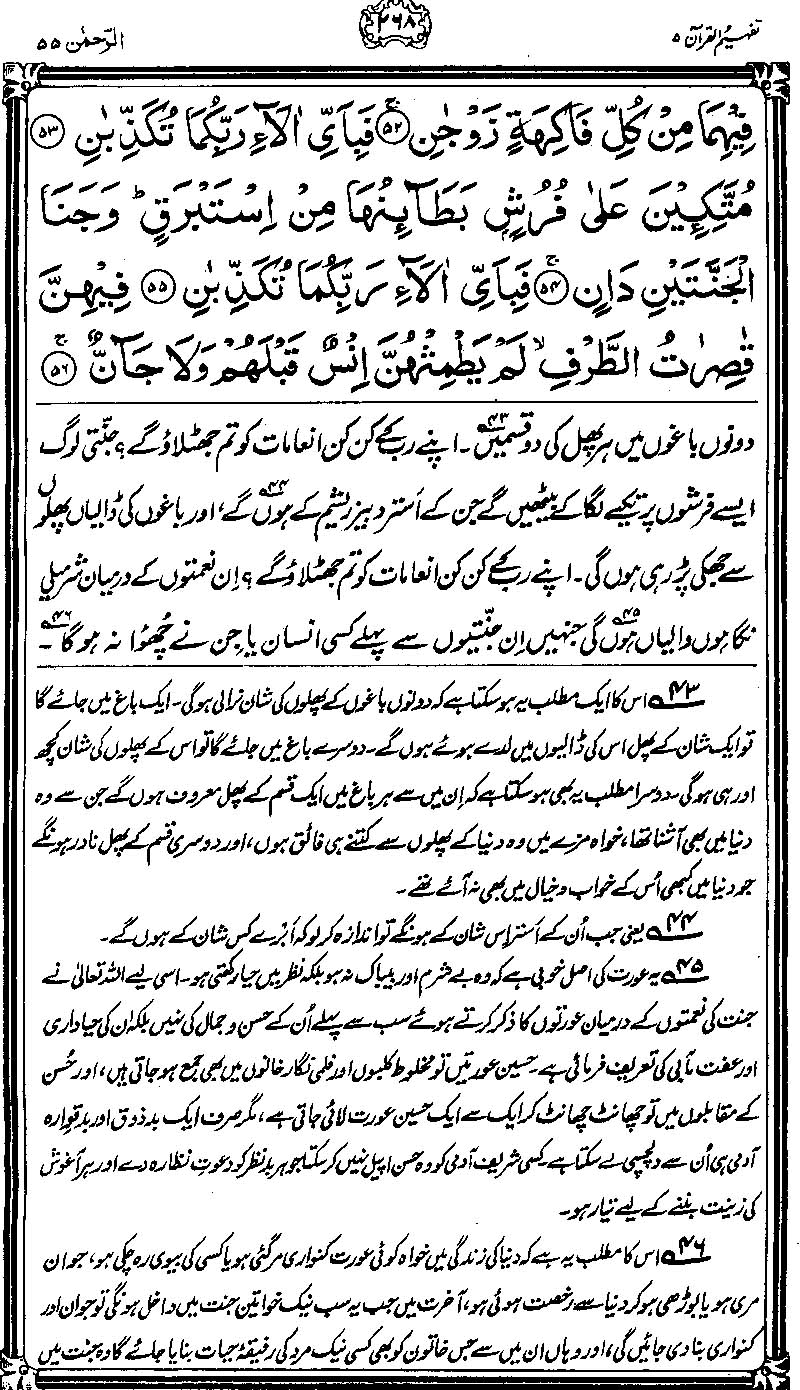 تفہیم القرآن ۵
۲۶۸
الرّحمٰن ۵۵
فِيْهِمَا مِنْ كُلِّ فَاكِهَةٍ زَوْجٰنِ ۚ﴿۵۲﴾ فَبِاَيِّ اٰلَآءِ رَبِّكُمَا تُكَذِّبٰنِ ﴿۵۳﴾
مُتَّكِـِٕيْنَ عَلٰى فُرُشٍۭ بَطَآىِٕنُهَا مِنْ اِسْتَبْرَقٍ ؕ وَجَنَا
الْجَنَّتَيْنِ دَانٍ ۚ﴿۵۴﴾ فَبِاَيِّ اٰلَآءِ رَبِّكُمَا تُكَذِّبٰنِ ﴿۵۵﴾ فِيْهِنَّ
قٰصِرٰتُ الطَّرْفِ ۙ لَمْ يَطْمِثْهُنَّ اِنْسٌ قَبْلَهُمْ وَلَا جَآنٌّ ۚ﴿۵۶﴾
دونوں باغوں میں ہر پھل کی دو قسمیں۴۳۔ اپنے رب کے کن کن انعامات کو تم جھٹلاؤ گے؟ جنّتی لوگ
ایسے فرشوں پر تکیے لگا کے بیٹھیں گے جن کے اَستر دبیز ریشم کے ہوں۴۴ گے، اور باغوں کی ڈالیاں پھلوں
سے جھکی پڑ رہی ہوں گی۔ اپنے رب کے کن کن انعامات کو تم جھٹلاؤ گے؟ اِن نعمتوں کے درمیان شرمیلی
نگاہوں والیاں ہوں۴۵ گی جنہیں اِن جنّتیوں سے پہلے کسی انسان یا جن نے چُھوا نہ ہو گا۴۶۔
۴۳ اس کا ایک مطلب یہ ہو سکتا ہے کہ دونوں باغوں کے پھلوں کی شان نرالی ہو گی۔ ایک باغ میں جائے گا
تو ایک شان کے پھل اس کی ڈالیوں میں لدے ہوئے ہوں گے۔ دوسرے باغ میں جائے گا تو اس کے پھلوں کی شان کچھ
اور ہی ہو گی۔ دوسرا مطلب یہ بھی ہو سکتا ہے کہ اِن میں سے ہر باغ میں ایک قسم کے پھل معروف ہوں گے جن سے وہ
دنیا میں بھی آشنا تھا، خواہ مزے میں وہ دنیا کے پھلوں سے کتنے ہی فائق ہوں، اور دوسری قسم کے پھل نادر ہونگے
جو دنیا میں کبھی اُس کے خواب و خیال میں بھی نہ آئے تھے۔
۴۴ یعنی جب اُن کے اَستر اِس شان کے ہونگے تو اندازہ کر لو کہ اَبرے کس شان کے ہوں گے۔
۴۵ یہ عورت کی اصل خوبی ہے کہ وہ بے شرم اور بیباک نہ ہو بلکہ نظر میں حیا رکھتی ہو۔ اسی لیے اللہ تعالیٰ نے
جنت کی نعمتوں کے درمیان عورتوں کا ذکر کرتے ہوئے سب سے پہلے اُن کے حسن و جمال کی نہیں بلکہ ان کی حیاداری
اور عفت مآبی کی تعریف فرمائی ہے۔ حسین عورتیں تو مخلوط کلبوں اور فلمی نگار خانوں میں بھی جمع ہو جاتی ہیں، اور حُسن
کے مقابلوں میں تو چھانٹ چھانٹ کر ایک سے ایک حسین عورت لائی جاتی ہے، مگر صرف ایک بد ذوق اور بد قوارہ
آدمی ہی اُن سے دلچسپی لے سکتا ہے۔ کسی شریف آدمی کو وہ حسن اپیل نہیں کر سکتا جو ہر بد نظر کو دعوتِ نظارہ دے اور ہر آغوش
کی زینت بننے کے لیے تیار ہو۔
۴۶ اس کا مطلب یہ ہے کہ دنیا کی زندگی میں خواہ کوئی عورت کنواری مر گئی ہو یا کسی کی بیوی رہ چکی ہو، جوان
مری ہو یا بوڑھی ہو کر دنیا سے رخصت ہوئی ہو، آخرت میں جب یہ سب نیک خواتین جنت میں داخل ہونگی تو جوان اور
کنواری بنا دی جائیں گی، اور وہاں ان میں سے جس خاتون کو بھی کسی نیک مرد کی رفیقۂ حیات بنایا جائے گا وہ جنت میں